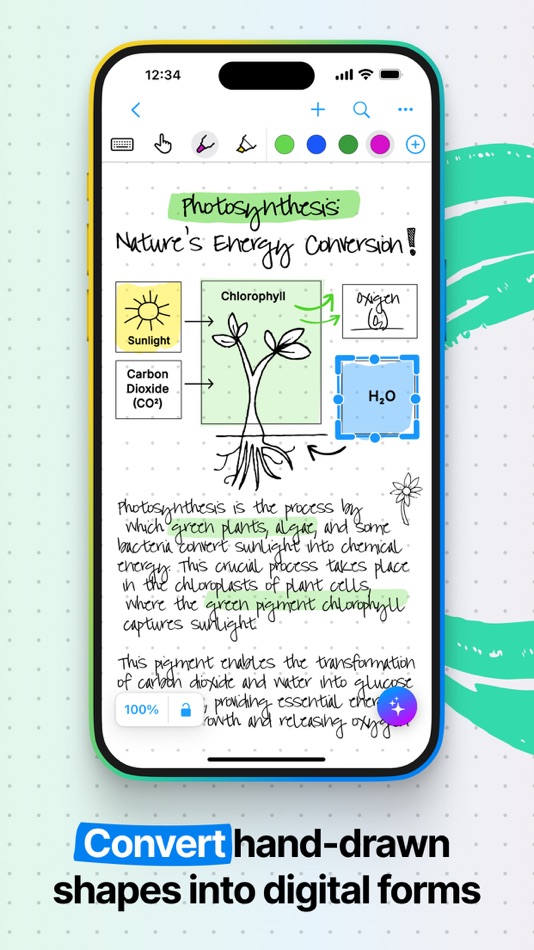 12:34
Photosynthesis:
Nature's Energy Conversion!
Chlorophyll
Sunlight
Oxigen
(O₂)
Carbon
Dioxide
(CO²)
H₂O
Photosynthesis is the process by
which green plants, algae, and some
bacteria convert sunlight into chemical
energy. This crucial process takes place
in the chloroplasts of plant cells,
where the green pigment chlorophyll
captures sunlight.
This pigment enables the transformation
of carbon dioxide and water into glucose
providing essential
100%
and releasing oxygen
Convert hand-drawn
shapes into digital forms